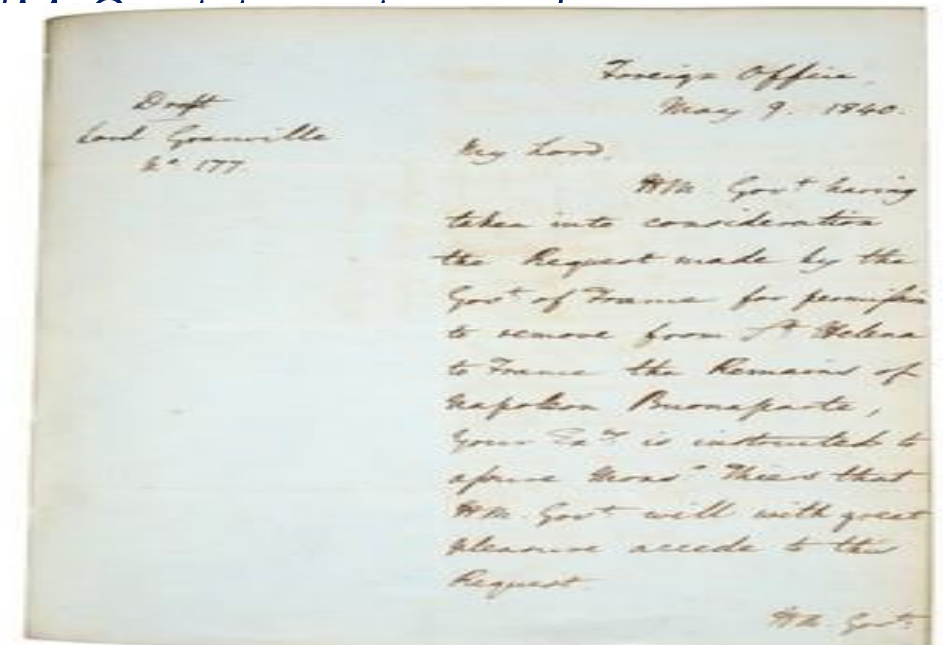 Draft
Lord Granville
No 177.
Foreign Office,
May 9. 1840.
My Lord,
HM. Govt having
taken into consideration
the Request made by the
Govt of France for permission
to remove from St Helena
to France the Remains of
Napoleon Buonaparte,
Your Exy. is instructed to
assure Monsr Thiers that
HM. Govt will with great
pleasure accede to this
Request.
HM. Govt.